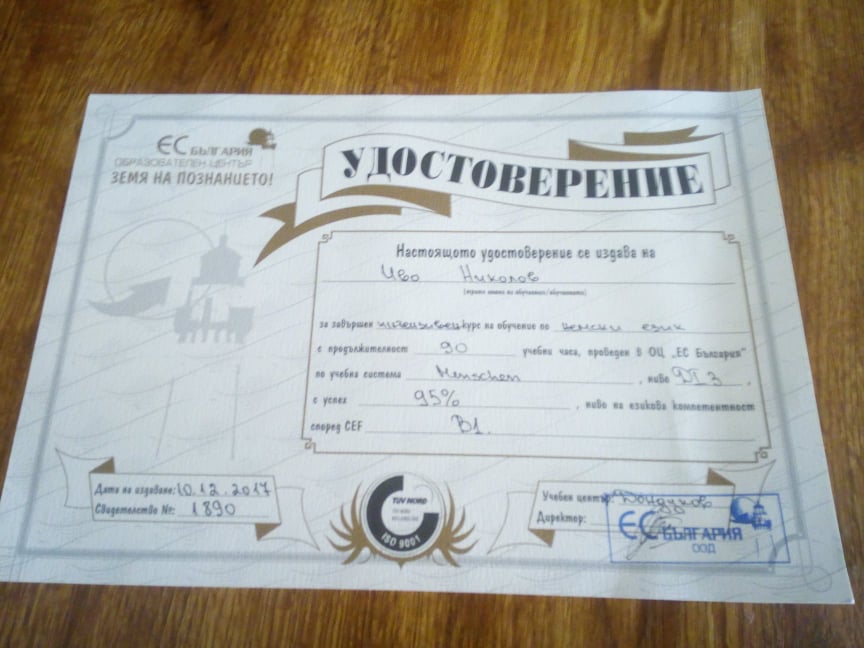 ЕС БЪЛГАРИЯ
ОБРАЗОВАТЕЛЕН ЦЕНТЪР
ЗЕМЯ НА ПОЗНАНИЕТО!
УДОСТОВЕРЕНИЕ
Настоящото удостоверение се издава на
Иво Николов
(трите имена на обучаемия/обучаемата)
за завършен интензивен курс на обучение по немски език
с продължителност 90 учебни часа, проведен в ОЦ „ЕС България"
по учебна система Menschen, ниво DT 3,
с успех 95%, ниво на езикова компетентност
според CEF B1.
Дата на издаване: 10.12.2017
Свидетелство №: 1890
TÜV NORD
ISO 9001
Учебен център: Дондуков
Директор:
ЕС БЪЛГАРИЯ
ООД